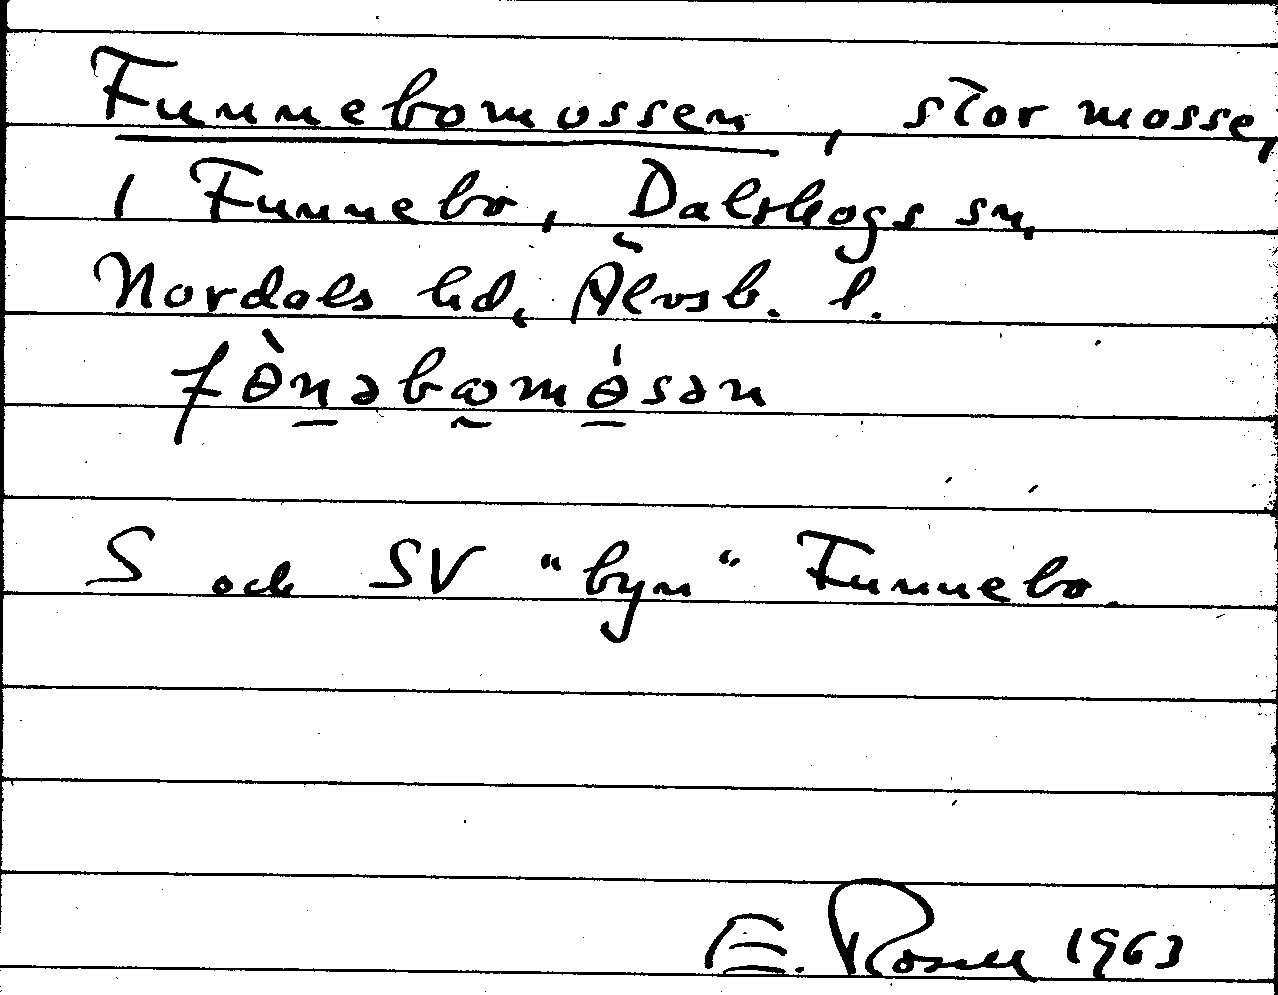 Funnebomossen, stor mosse,
i Funnebo, Dalskogs sn,
Nordals hd, Älvsb. l.
fɵ̀n̲əbωmɵ̲́sən
S och SV "byn" Funnebo.
E. Rosell 1963